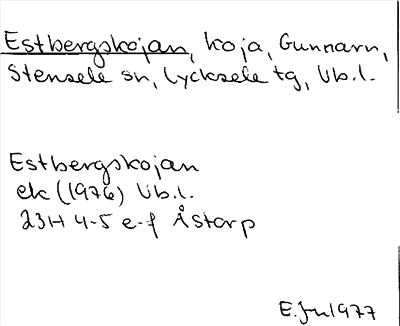 Estbergskojan, koja, Gunnarn,
Stensele sn, Lycksele tg, Vb.l.
Estbergskojan
ek (1976) Vb.l.
23H 4-5 e-f Åstorp
E.Ju 1977